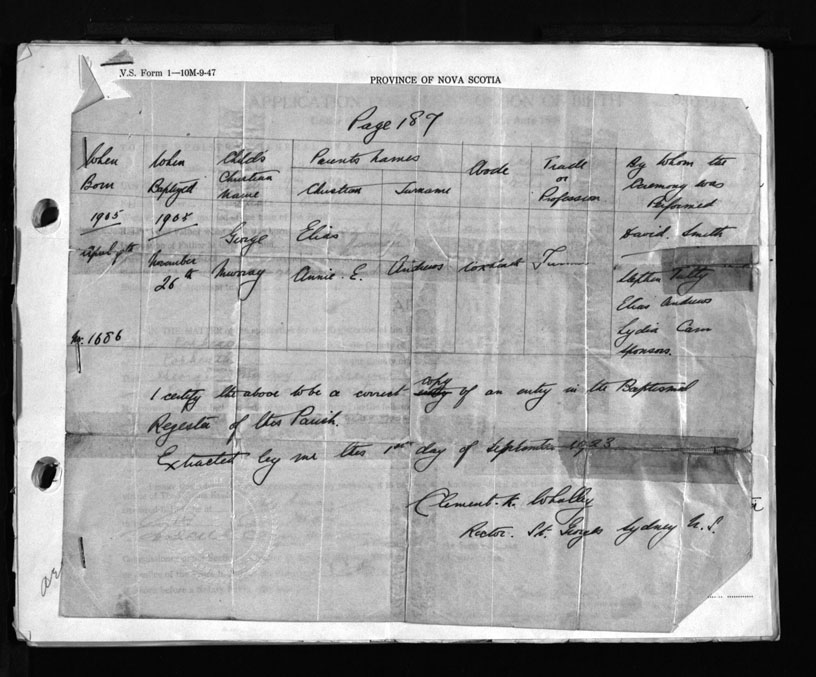 V.S. Form 1—10M-9-47
PROVINCE OF NOVA SCOTIA
Page 187
When Born
When Baptized
Child's Christian Name
Parents Names
Christian Surname
Abode
Trade or Profession
By Whom the Ceremony was Performed
1905
April
1905
November 26th
George Murray
Elias
Annie. E. Andrews
Coxheath
David. Smith
Stephen Tutty
Elias Andrews
Lydia
Sponsors.
No. 1686
I certify the above to be a correct copy of an entry in the Baptismal
Register of this Parish.
Extracted by me this 1st day of September 1923
Clement. H. Whalley
Rector. St. Georges Sydney N. S.